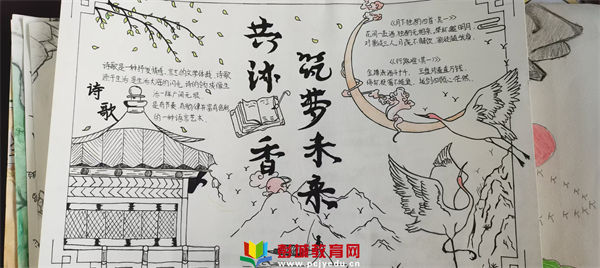 共沐书香
筑梦未来
诗歌
诗歌是一种抒发情感、言志的文学体裁，诗歌
源于生活
是有节奏、有韵律并富有色彩
的一种语言艺术。
《月下独酌四首·其一》
花间一壶酒，独酌无相亲。举杯邀明月，
对影成三人。月既不解饮，影徒随我身。
《行路难·其一》
金樽清酒斗十千，玉盘珍羞直万钱。
停杯投箸不能食，拔剑四顾心茫然。
彭城教育网
www.pcjyedu.cn